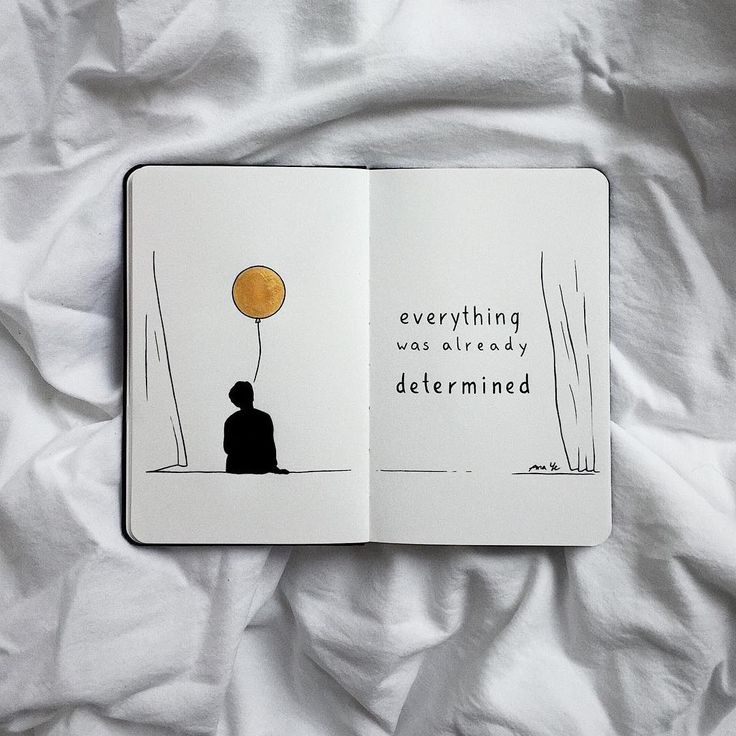 everything
was already
determined